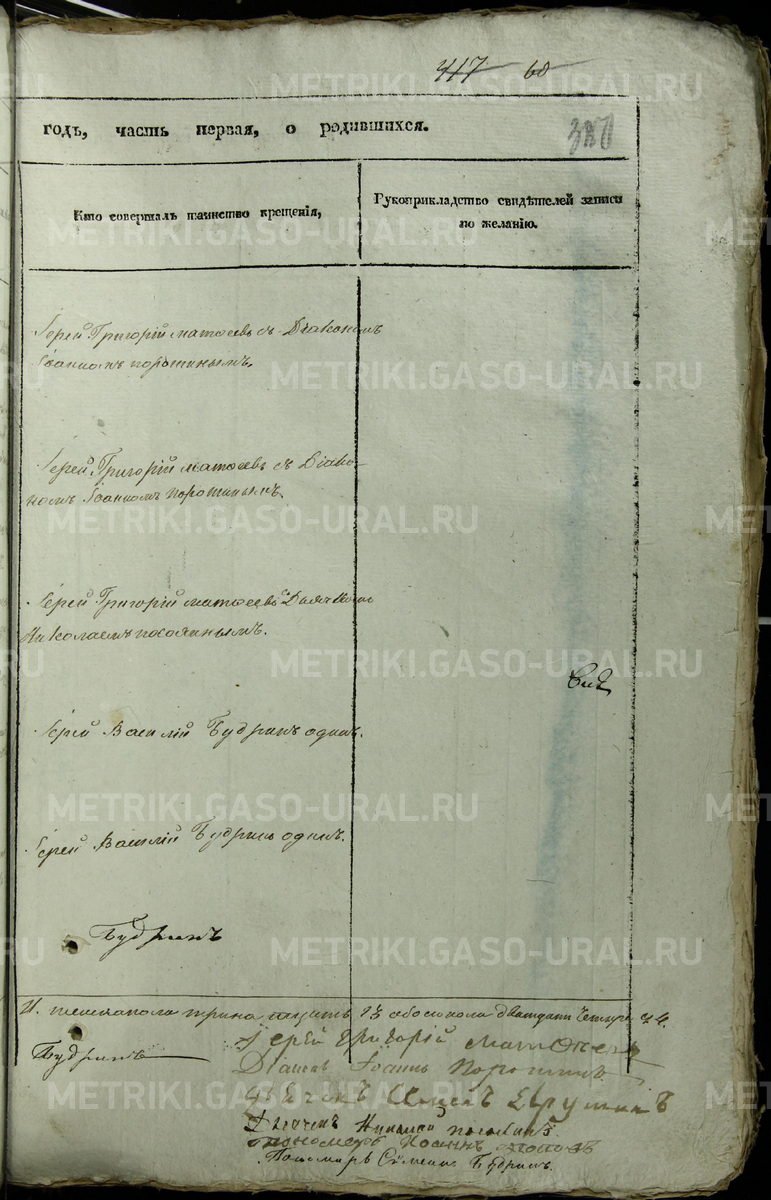 417 60
годъ, часть первая, о родившихся.
Кто совершалъ таинство крещенія,
Рукоприкладство свидѣтелей записи
по желанію.
Іерей Григорій Матѳеевъ съ Діакономъ
Іоанномъ Порошинымъ.
Іерей Григорій Матѳеевъ съ Діако-
номъ Іоанномъ Порошинымъ.
Іерей Григорій Матѳеевъ съ Дьячкомъ
Николаемъ
Іерей Василій Будринъ одинъ.
Іерей Василій Будринъ одинъ.
Будринъ
И. женскаго пола 13 обоего пола дватцать четыре 24.
Іерей Григорій Матѳеевъ
Будринъ
Діаконъ Іоаннъ Порошинъ
Дьячекъ
Дьячекъ Николай
Пономарь Иоаннъ Поповъ
Пономарь Семенъ Будринъ.
METRIKI.GASO-URAL.RU